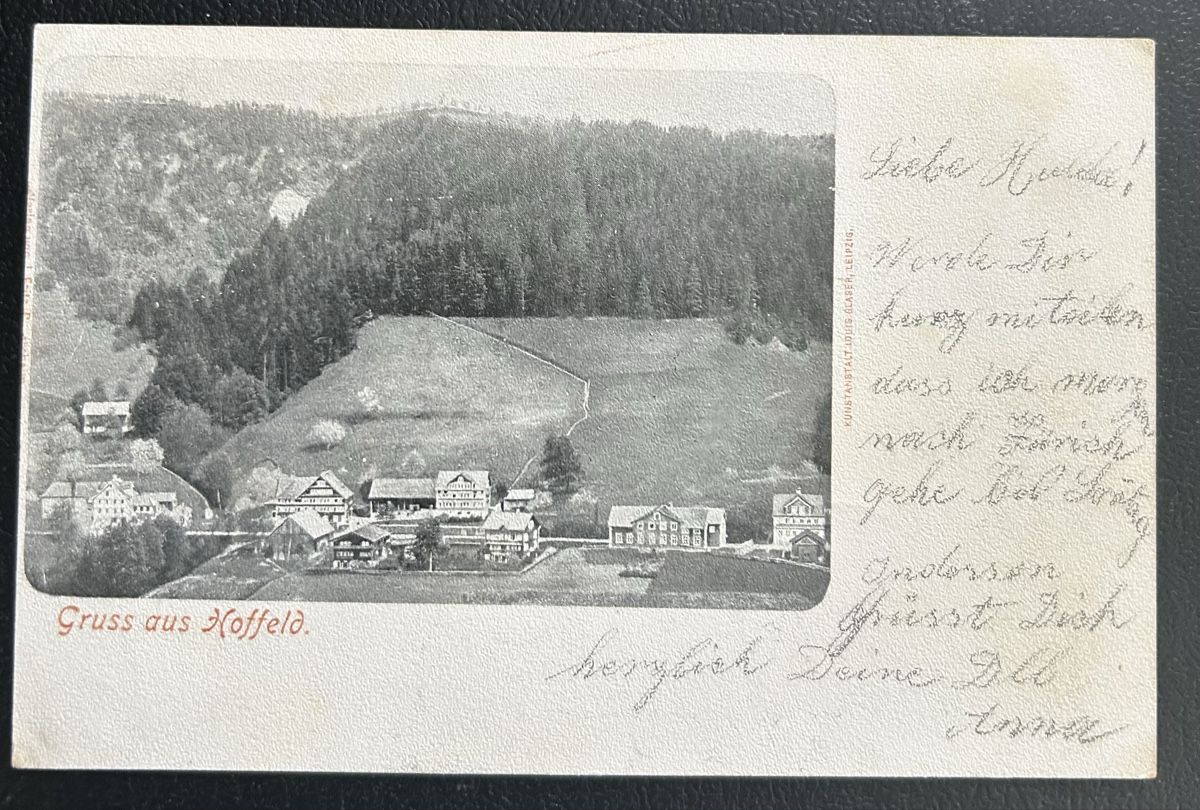 Liebe Hulda!
Werde Dir
kurz mitteilen
dass ich morgen
nach Zürich
gehe
Anderson
Grüsst Dich
herzlich Deine
Anna
KUNSTANSTALT LOUIS GLASER, LEIPZIG.
Gruss aus Hoffeld.